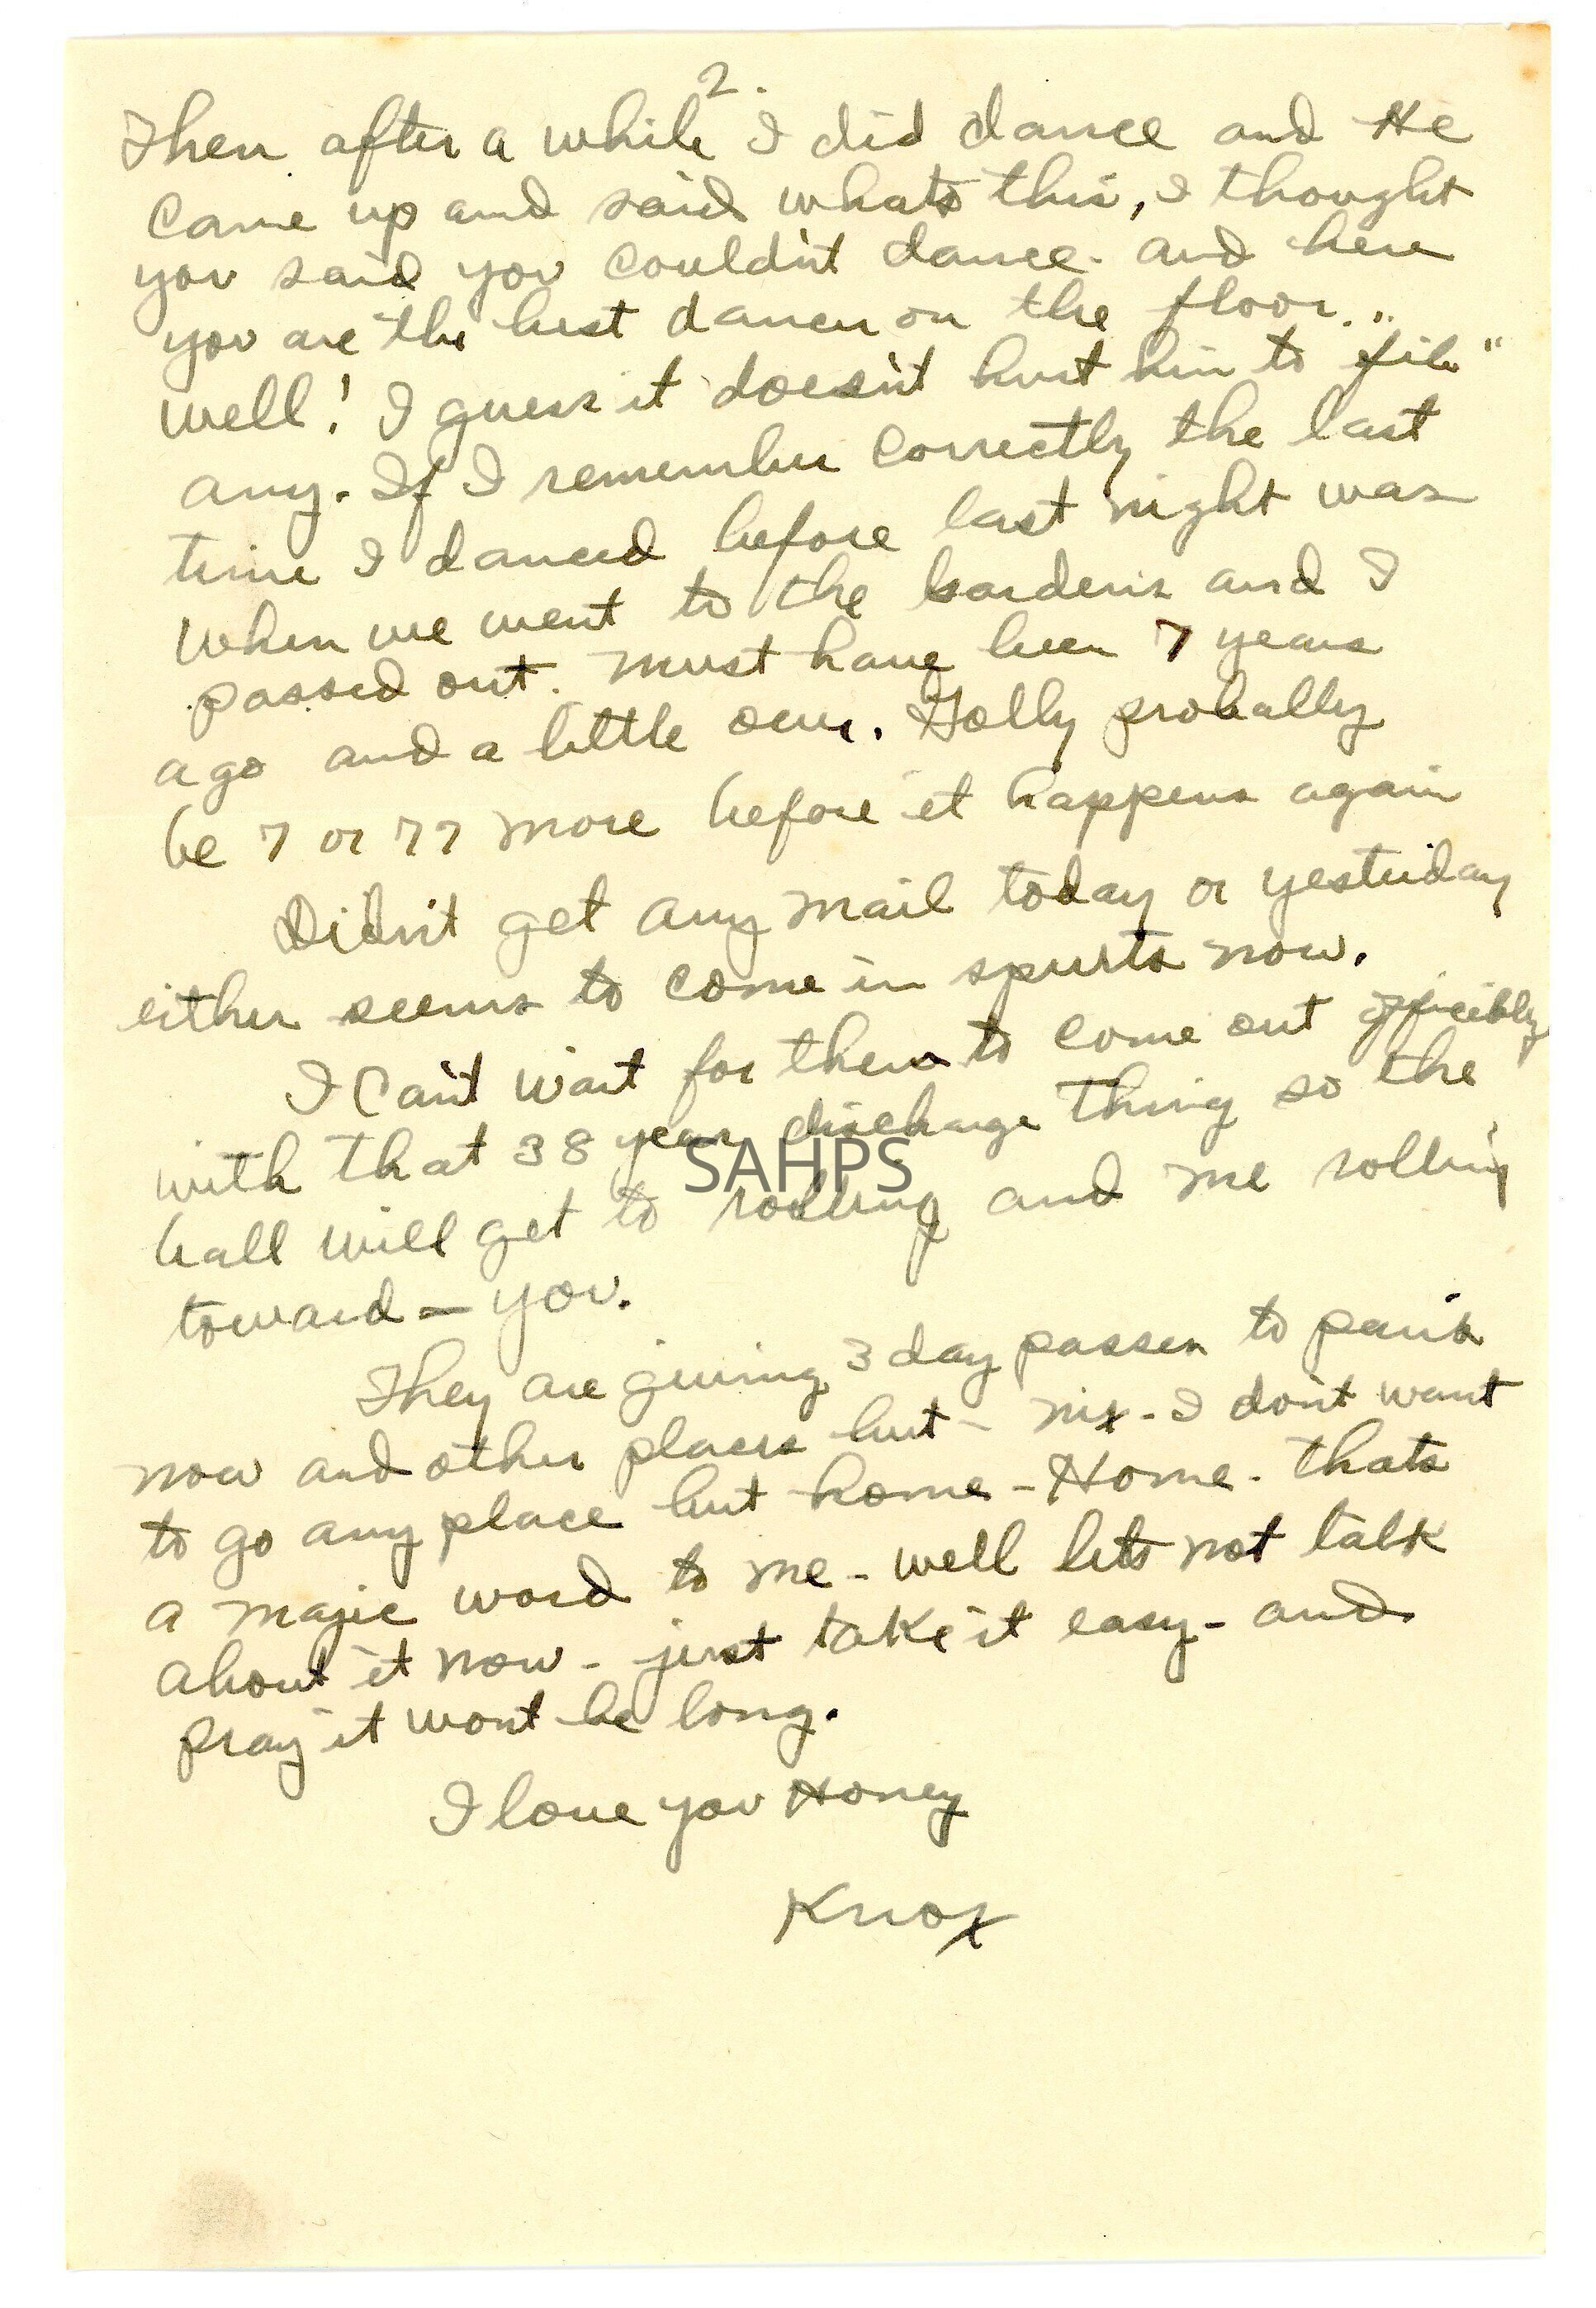 2.
Then after a while I did dance and He
came up and said whats this, I thought
you said you couldn't dance- and here
you are the best dancer on the floor..
well! I guess it doesn't hurt him to "fib"
any. If I remember correctly the last
time I danced before last night was
when we went to the Gardens and I
passed out. must have been 7 years
ago and a little over. Golly probally
be 7 or 77 more before it happens again
Didn't get any mail today or yesterday
either seems to come in spurts now.
I Can't wait for them to come out
with that 38 year discharge thing so the
ball will get to rolling and me rolling
toward - you.
They are giving 3 day passes to paris
now and other places but - nix - I don't want
to go any place but home - Home - thats
a majic word to me - well lets not talk
about it now - just take it easy - and
pray it wont be long.
I love you Honey
Knox
SAHPS